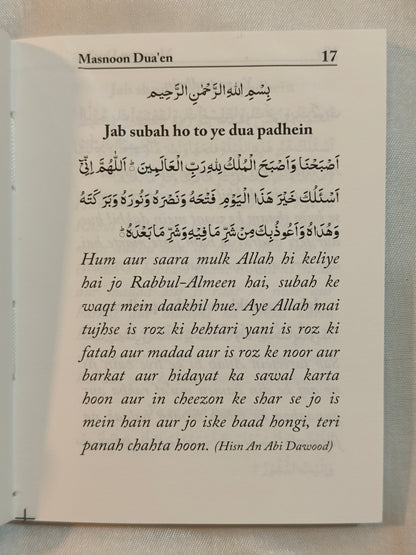 Masnoon Dua'en 17
بِسْمِ اللهِ الرَّحْمٰنِ الرَّحِيْمِ
Jab subah ho to ye dua padhein
اَصْبَحْنَا وَاَصْبَحَ الْمُلْكُ لِلّٰهِ رَبِّ الْعَالَمِيْنَ ؕ اَللّٰهُمَّ اِنِّيْ
اَسْئَلُكَ خَيْرَ هَذَا الْيَوْمِ فَتْحَهُ وَنَصْرَهُ وَنُورَهُ وَبَرَكَتَهُ
وَهُدَاهُ وَاَعُوذُ بِكَ مِنْ شَرِّ مَا فِيْهِ وَشَرِّ مَا بَعْدَهُ ؕ
Hum aur saara mulk Allah hi keliye
hai jo Rabbul-Almeen hai, subah ke
waqt mein daakhil hue. Aye Allah mai
tujhse is roz ki behtari yani is roz ki
fatah aur madad aur is roz ke noor aur
barkat aur hidayat ka sawal karta
hoon aur in cheezon ke shar se jo is
mein hain aur jo iske baad hongi, teri
panah chahta hoon. (Hisn An Abi Dawood)